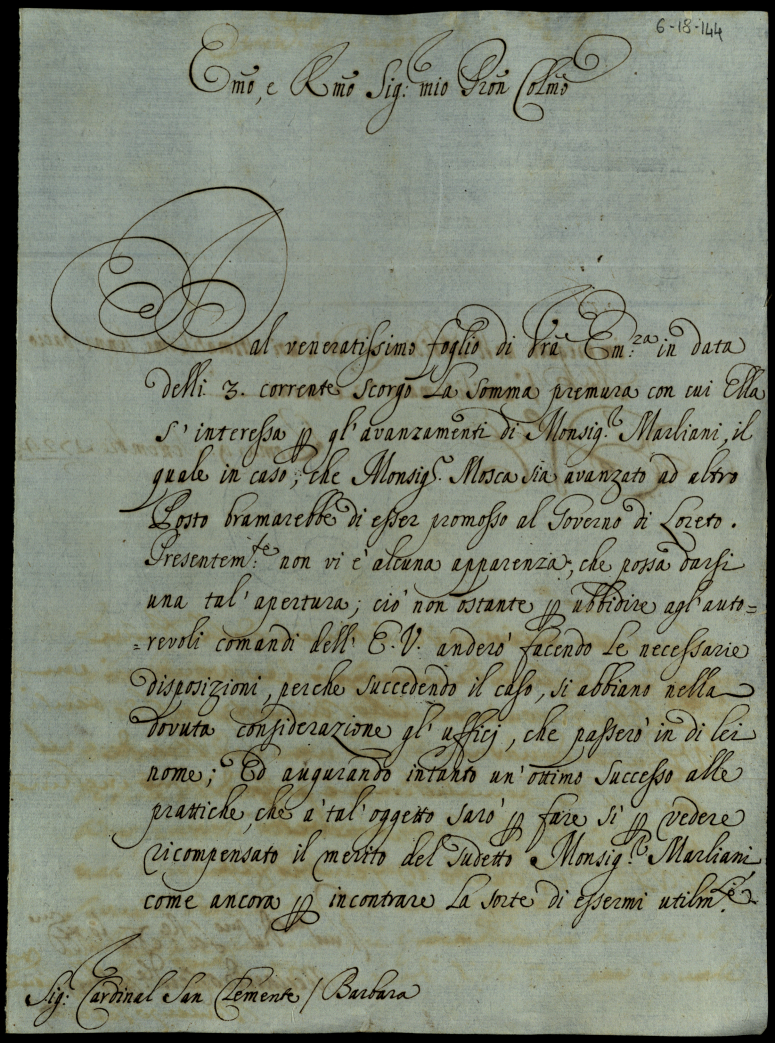 6-18-144
Emõ, e Rmõ Sig:r mio Pron̄ Colmõ
Dal veneratissimo foglio di Vrã Em:za in data
delli 3. corrente scorgo la somma premura con cui Ella
s' interessa ꝑ gl' avanzamenti di Monsig:r Marliani, il
quale in caso, che Monsig:r Mosca sia avanzato ad altro
Posto bramarebbe di esser promosso al Governo di Loreto.
Presentem:te non vi è alcuna apparenza, che possa darsi
una tal' apertura; ciò non ostante ꝑ ubbidire agl' auto=
=revoli comandi dell' E. V. anderò facendo le necessarie
disposizioni, perche succedendo il caso, si abbiano nella
dovuta considerazione gl' ufficj, che passerò in di lei
nome; Ed augurando intanto un' ottimo successo alle
prattiche, che a' tal' oggetto sarò ꝑ fare sì ꝑ vedere
ricompensato il merito del sudetto Monsig:r Marliani
come ancora ꝑ incontrare la sorte di essermi utilm:te
Sig:r Cardinal San Clemente / Barbara